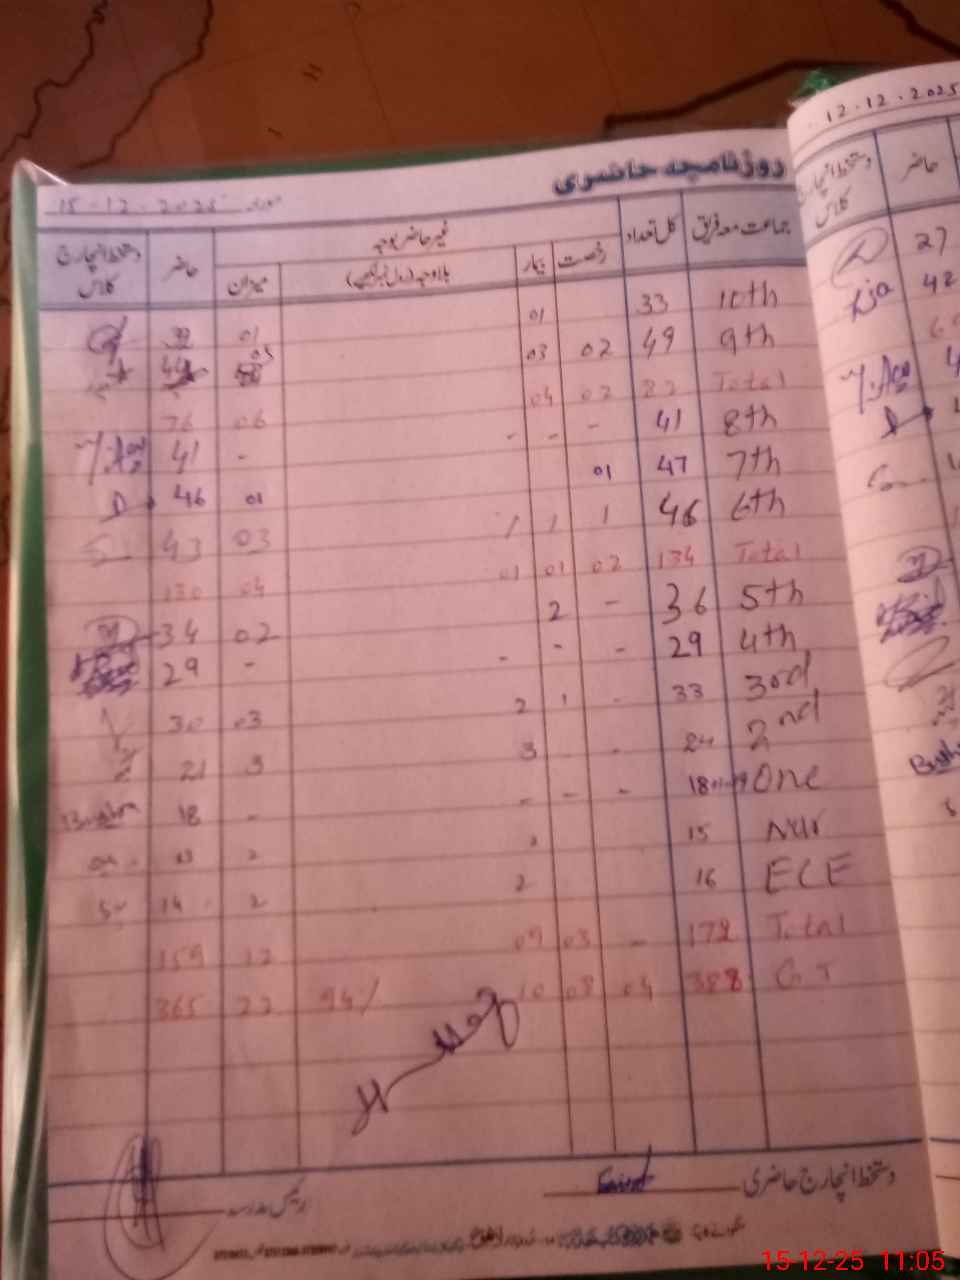 12.12.2025
دستخط انچارج کلاس حاضر
27
42
روزنامچہ حاضری
15-12-2025
جماعت معہ فریق کل تعداد غیر حاضر بوجہ حاضر دستخط انچارج کلاس
رخصت بیمار بلاوجہ میزان
10th 33 01 01
9th 49 02 03 05 44
Total 82 02 04 06 76
8th 41 - - - - 41
7th 47 01 01 46
6th 46 1 1 1 03 43
Total 134 02 01 01 04 130
5th 36 - 2 02 34
4th 29 - - - - 29
3rd 33 - 1 2 03 30
2nd 24 - 3 3 21
One 18 - - - - 18
Nur 15 2 2 13
ECE 16 2 2 14
Total 172 - 03 09 12 159
G.T 388 04 08 10 94% 22 365
دستخط انچارج حاضری
رئیس مدرسہ
15-12-25 11:05